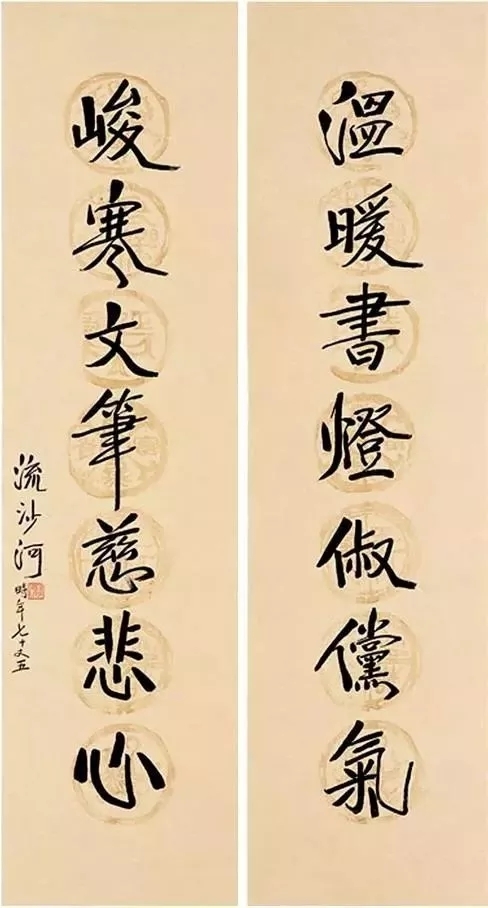 溫暖書燈俶儻氣
峻寒文筆慈悲心
流沙河
時年七十又五